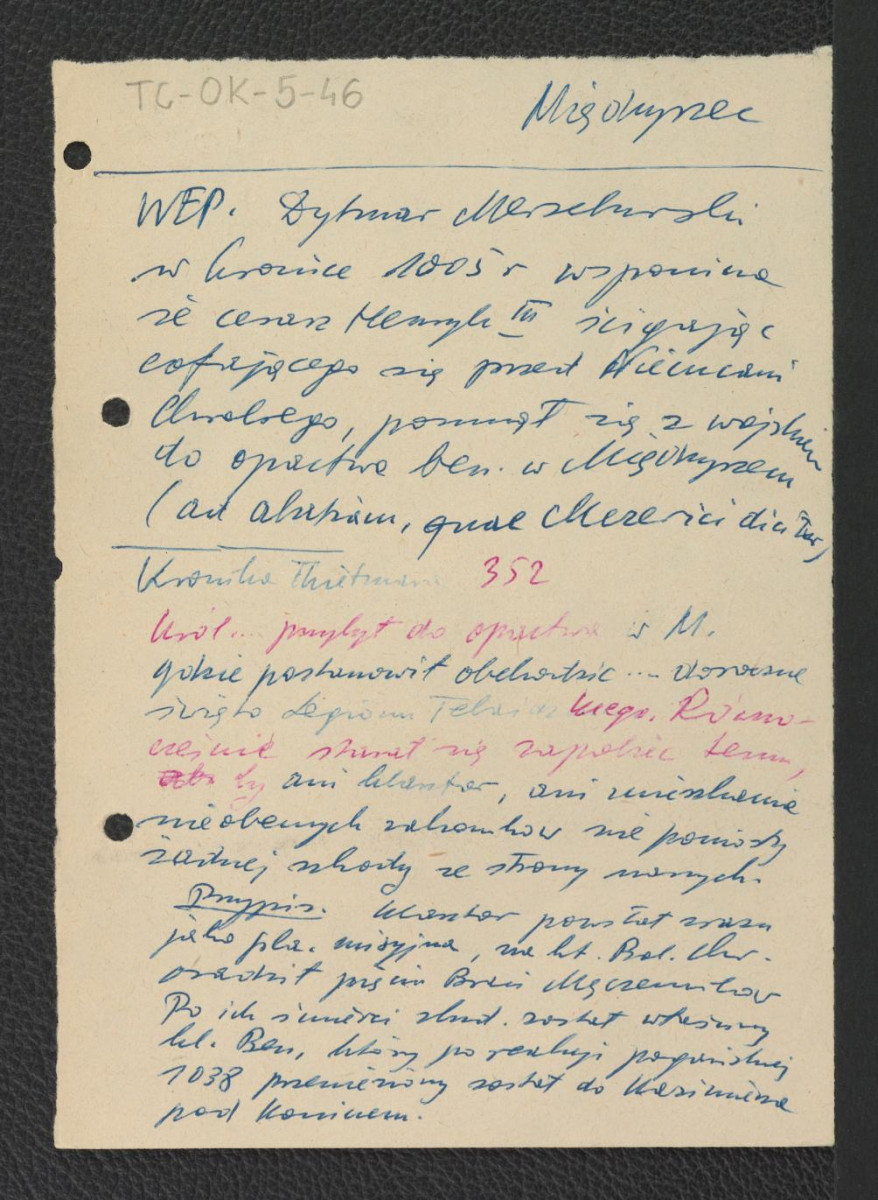 TG-OK-5-46
Międzyrzec
WEP. Dytmar Merseburski
w kronice 1005 r wspomina
że cesarz Henryk III ścigając
cofającego się przed Niemcami
Chrobrego, posunął się z wojskiem
do opactwa ben. w Międzyrzeczu
(ad abatiam, quae Mezerici dicitur)
Kronika Thietmara 352
Król... przybył do opactwa w M.
gdzie postanowił obchodzić ... doroczne
święto Legionu Tebaidzkiego. Równo-
cześnie starał się zapobiec temu,
by ani klasztor, ani mieszkania
nieobecnych zakonników nie poniosły
żadnej szkody ze strony naszych.
Przypis. Klasztor powstał zrazu
jako pla. misyjna, na kt. Bol. Chr.
osadził pięciu Braci Męczenników
Po ich śmierci zbud. został właściwy
kl. Ben, który po reakcji pogańskiej
1038 przeniesiony został do Kazimierza
pod Koninem.